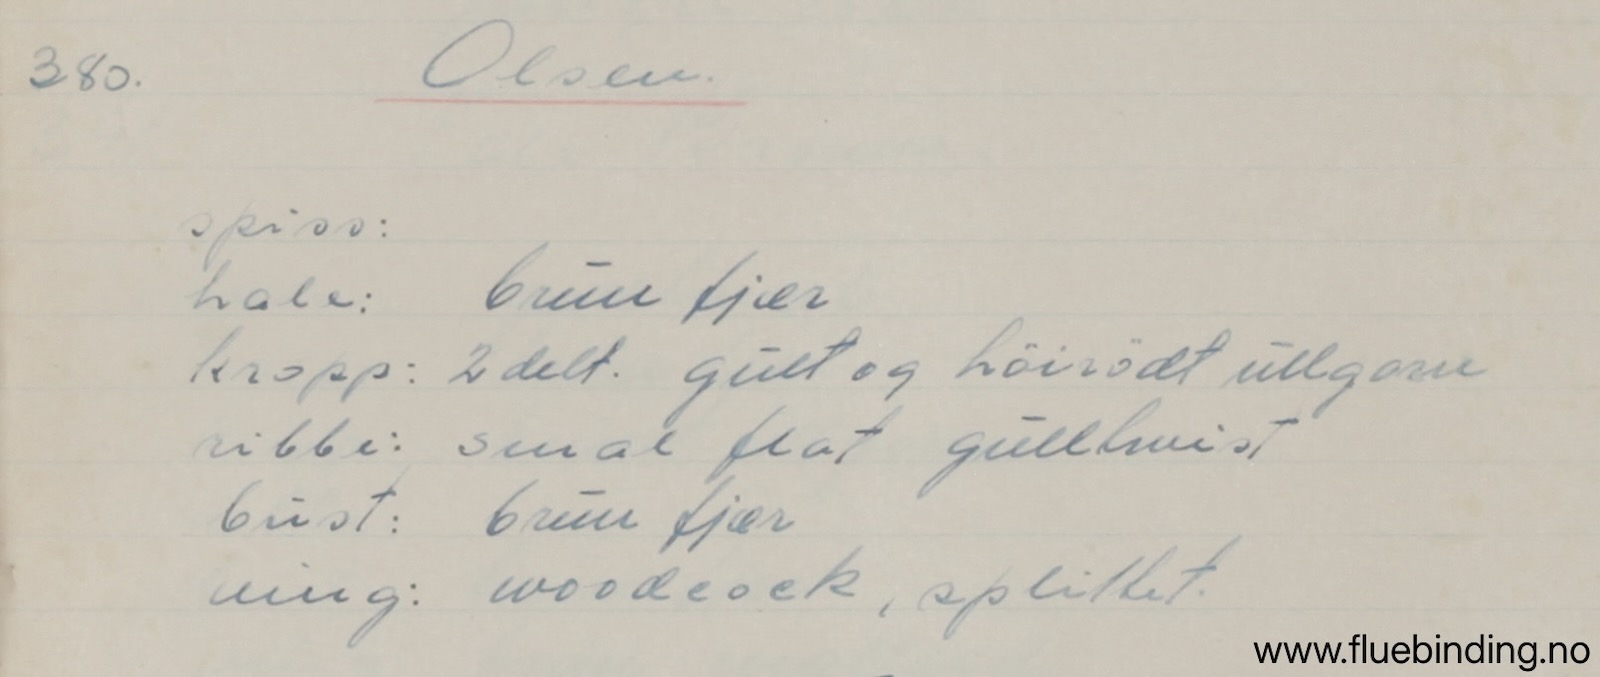 380. Olsen.
spiss:
hale: brun fjær
kropp: 2 delt. gult og höirödt ullgarn
ribbe: smal flat gulltwist
bust: brun fjær
ving: woodcock, splittet.
www.fluebinding.no